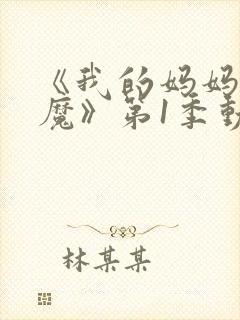 《我的妈妈
魔》第1季動
林某某